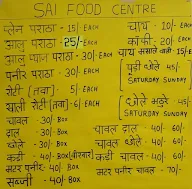 SAI FOOD CENTRE
प्लेन पराठा - 15/- EACH
आलू पराठा - 25/- EACH
आलू प्याज पराठा - 30/- EACH
पनीर पराठा - 30/- EACH
रोटी (तवा) - 5/- EACH
खाली रोटी (तवा) - 6/- EACH
चावल - 30/- BOX
दाल - 30/- BOX
छोले - 30/- BOX
कढ़ी - 40/- BOX (शनिवार)
मटर पनीर - 40/- BOX
सब्जी - 40/- BOX
चाय - 10/- EACH
काफी - 20/- EACH
चाय मसाले वाली - 15/-
पूड़ी छोले - 45/-
SATURDAY SUNDAY
छोले भटूरे - 45/-
SATURDAY SUNDAY
चावल दाल - 40/- 60/-
चावल छोले - 40/- 60/-
कढ़ी चावल - 40/- 60/-
मटर पनीर चावल - 70/-